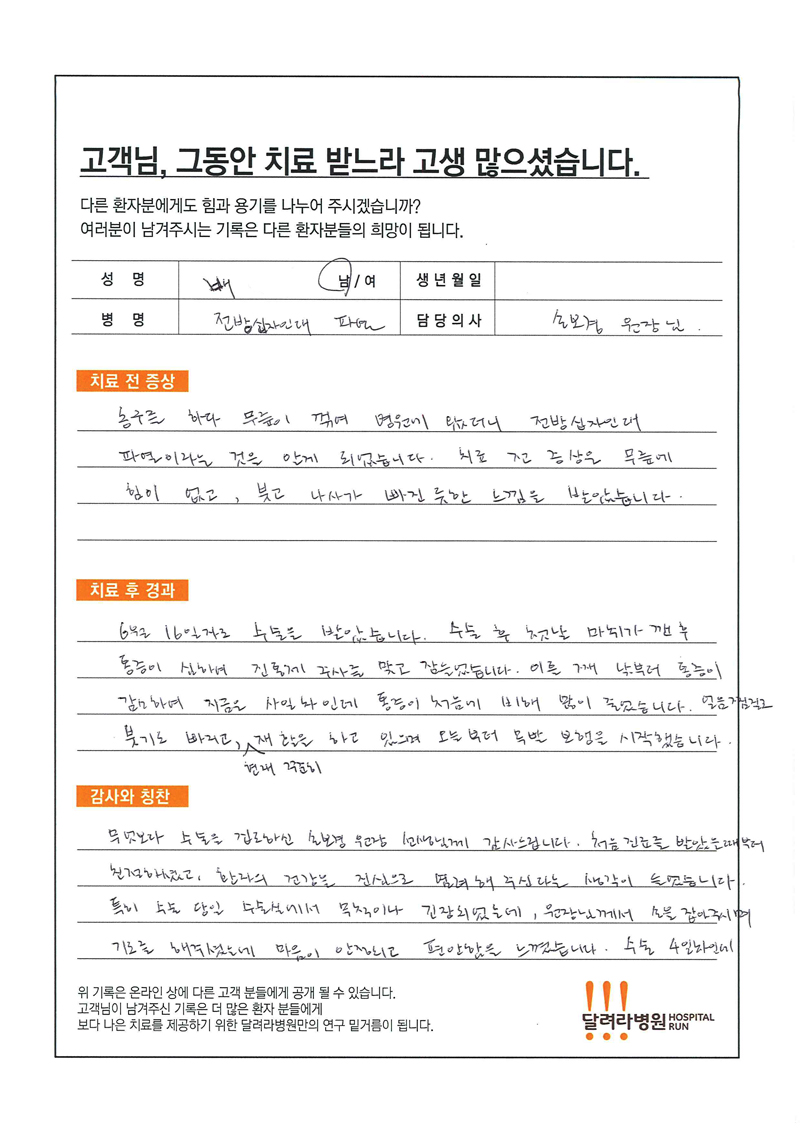 고객님, 그동안 치료 받느라 고생 많으셨습니다.
다른 환자분에게도 힘과 용기를 나누어 주시겠습니까?
여러분이 남겨주시는 기록은 다른 환자분들의 희망이 됩니다.
성 명 배 남/여 생년월일
병 명 전방십자인대 파열 담당의사 손보경 원장님.
치료 전 증상
농구를 하다 무릎이 꺾여 병원에 왔더니 전방십자인대
파열이라는 것을 알게 되었습니다. 치료 전 증상은 무릎에
힘이 없고, 붓고 나사가 빠진 듯한 느낌을 받았습니다.
치료 후 경과
6월 16일자로 수술을 받았습니다. 수술 후 첫날 마취가 깬 후
통증이 심하여 진통제 주사를 맞고 잠들었습니다. 이틀 째 낮부터 통증이
감소하여 지금은 사일차인데 통증이 처음에 비해 많이 줄었습니다. 얼음찜질로
붓기도 빠지고, 현재 꾸준히 재활을 하고 있으며 오늘부터 목발 보행을 시작했습니다.
감사와 칭찬
무엇보다 수술을 집도하신 손보경 원장 선생님께 감사드립니다. 처음 진료를 받았을때부터
친절하셨고, 환자의 건강을 진심으로 염려해 주신다는 생각이 들었습니다.
특히 수술 당일 수술실에서 무척이나 긴장되었는데, 원장님께서 손을 잡아주시며
기도를 해주셨는데 마음이 안정되고 편안함을 느꼈습니다. 수술 4일차인데
위 기록은 온라인 상에 다른 고객 분들에게 공개 될 수 있습니다.
고객님이 남겨주신 기록은 더 많은 환자 분들에게
보다 나은 치료를 제공하기 위한 달려라병원만의 연구 밑거름이 됩니다.
달려라병원 HOSPITAL RUN